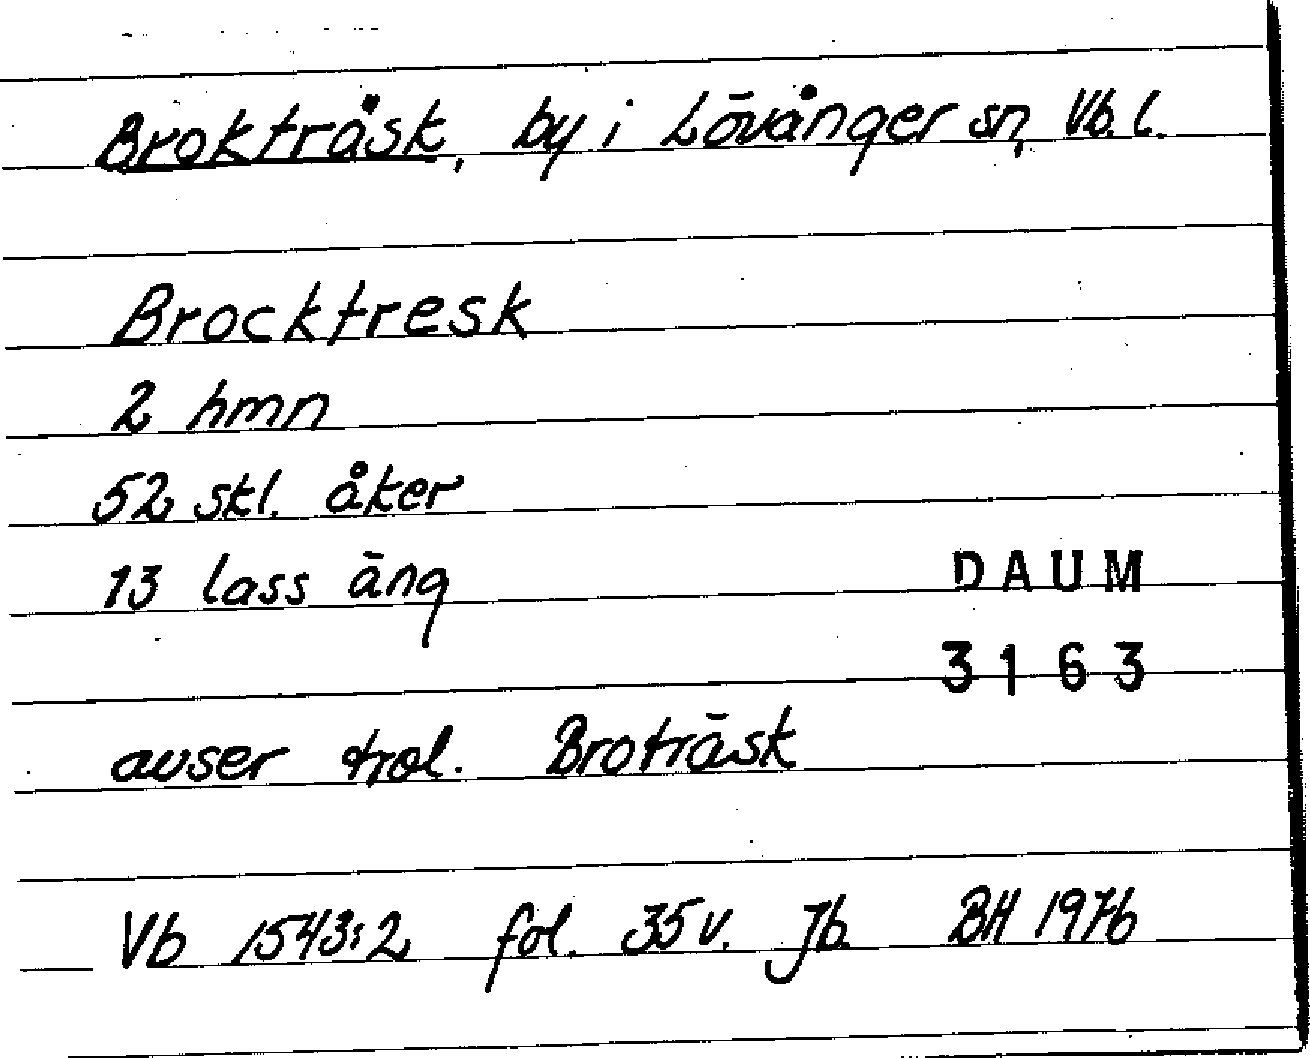 Brokträsk, by i Lövånger sn, Vb. l.
Brocktresk
2 hmn
52 skl. åker
13 lass äng
DAUM
3163
avser trol. Broträsk
Vb 1543:2 fol. 35 v. Jb. BH 1976